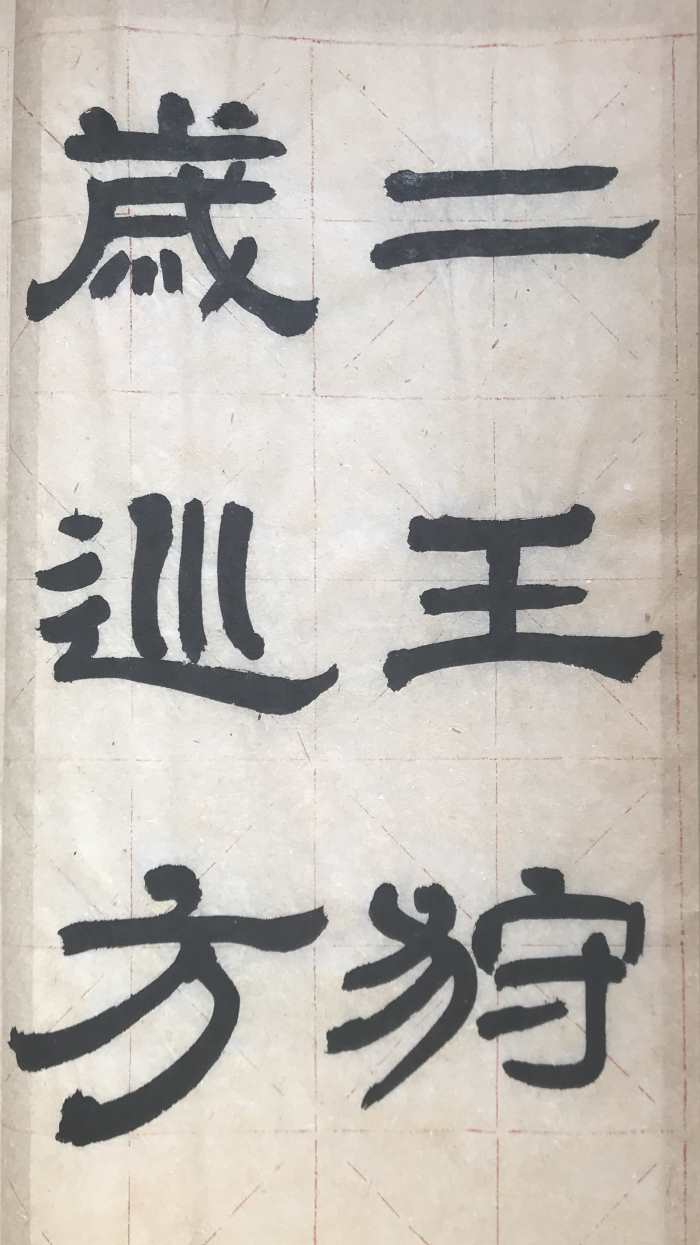 二歲
王巡
狩方